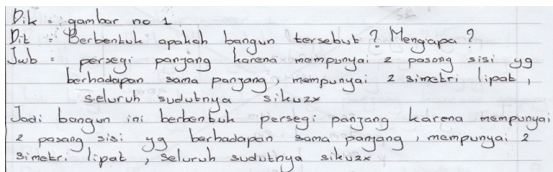 Dik = gambar no 1
Dit = Berbentuk apakah bangun tersebut ? Mengapa ?
Jwb = persegi panjang karena mempunyai 2 pasang sisi yg
berhadapan sama panjang, mempunyai 2 simetri lipat,
seluruh sudutnya siku2x
Jadi bangun ini berbentuk persegi panjang karena mempunyai
2 pasang sisi yg berhadapan sama panjang, mempunyai 2
simetri lipat, seluruh sudutnya siku2x